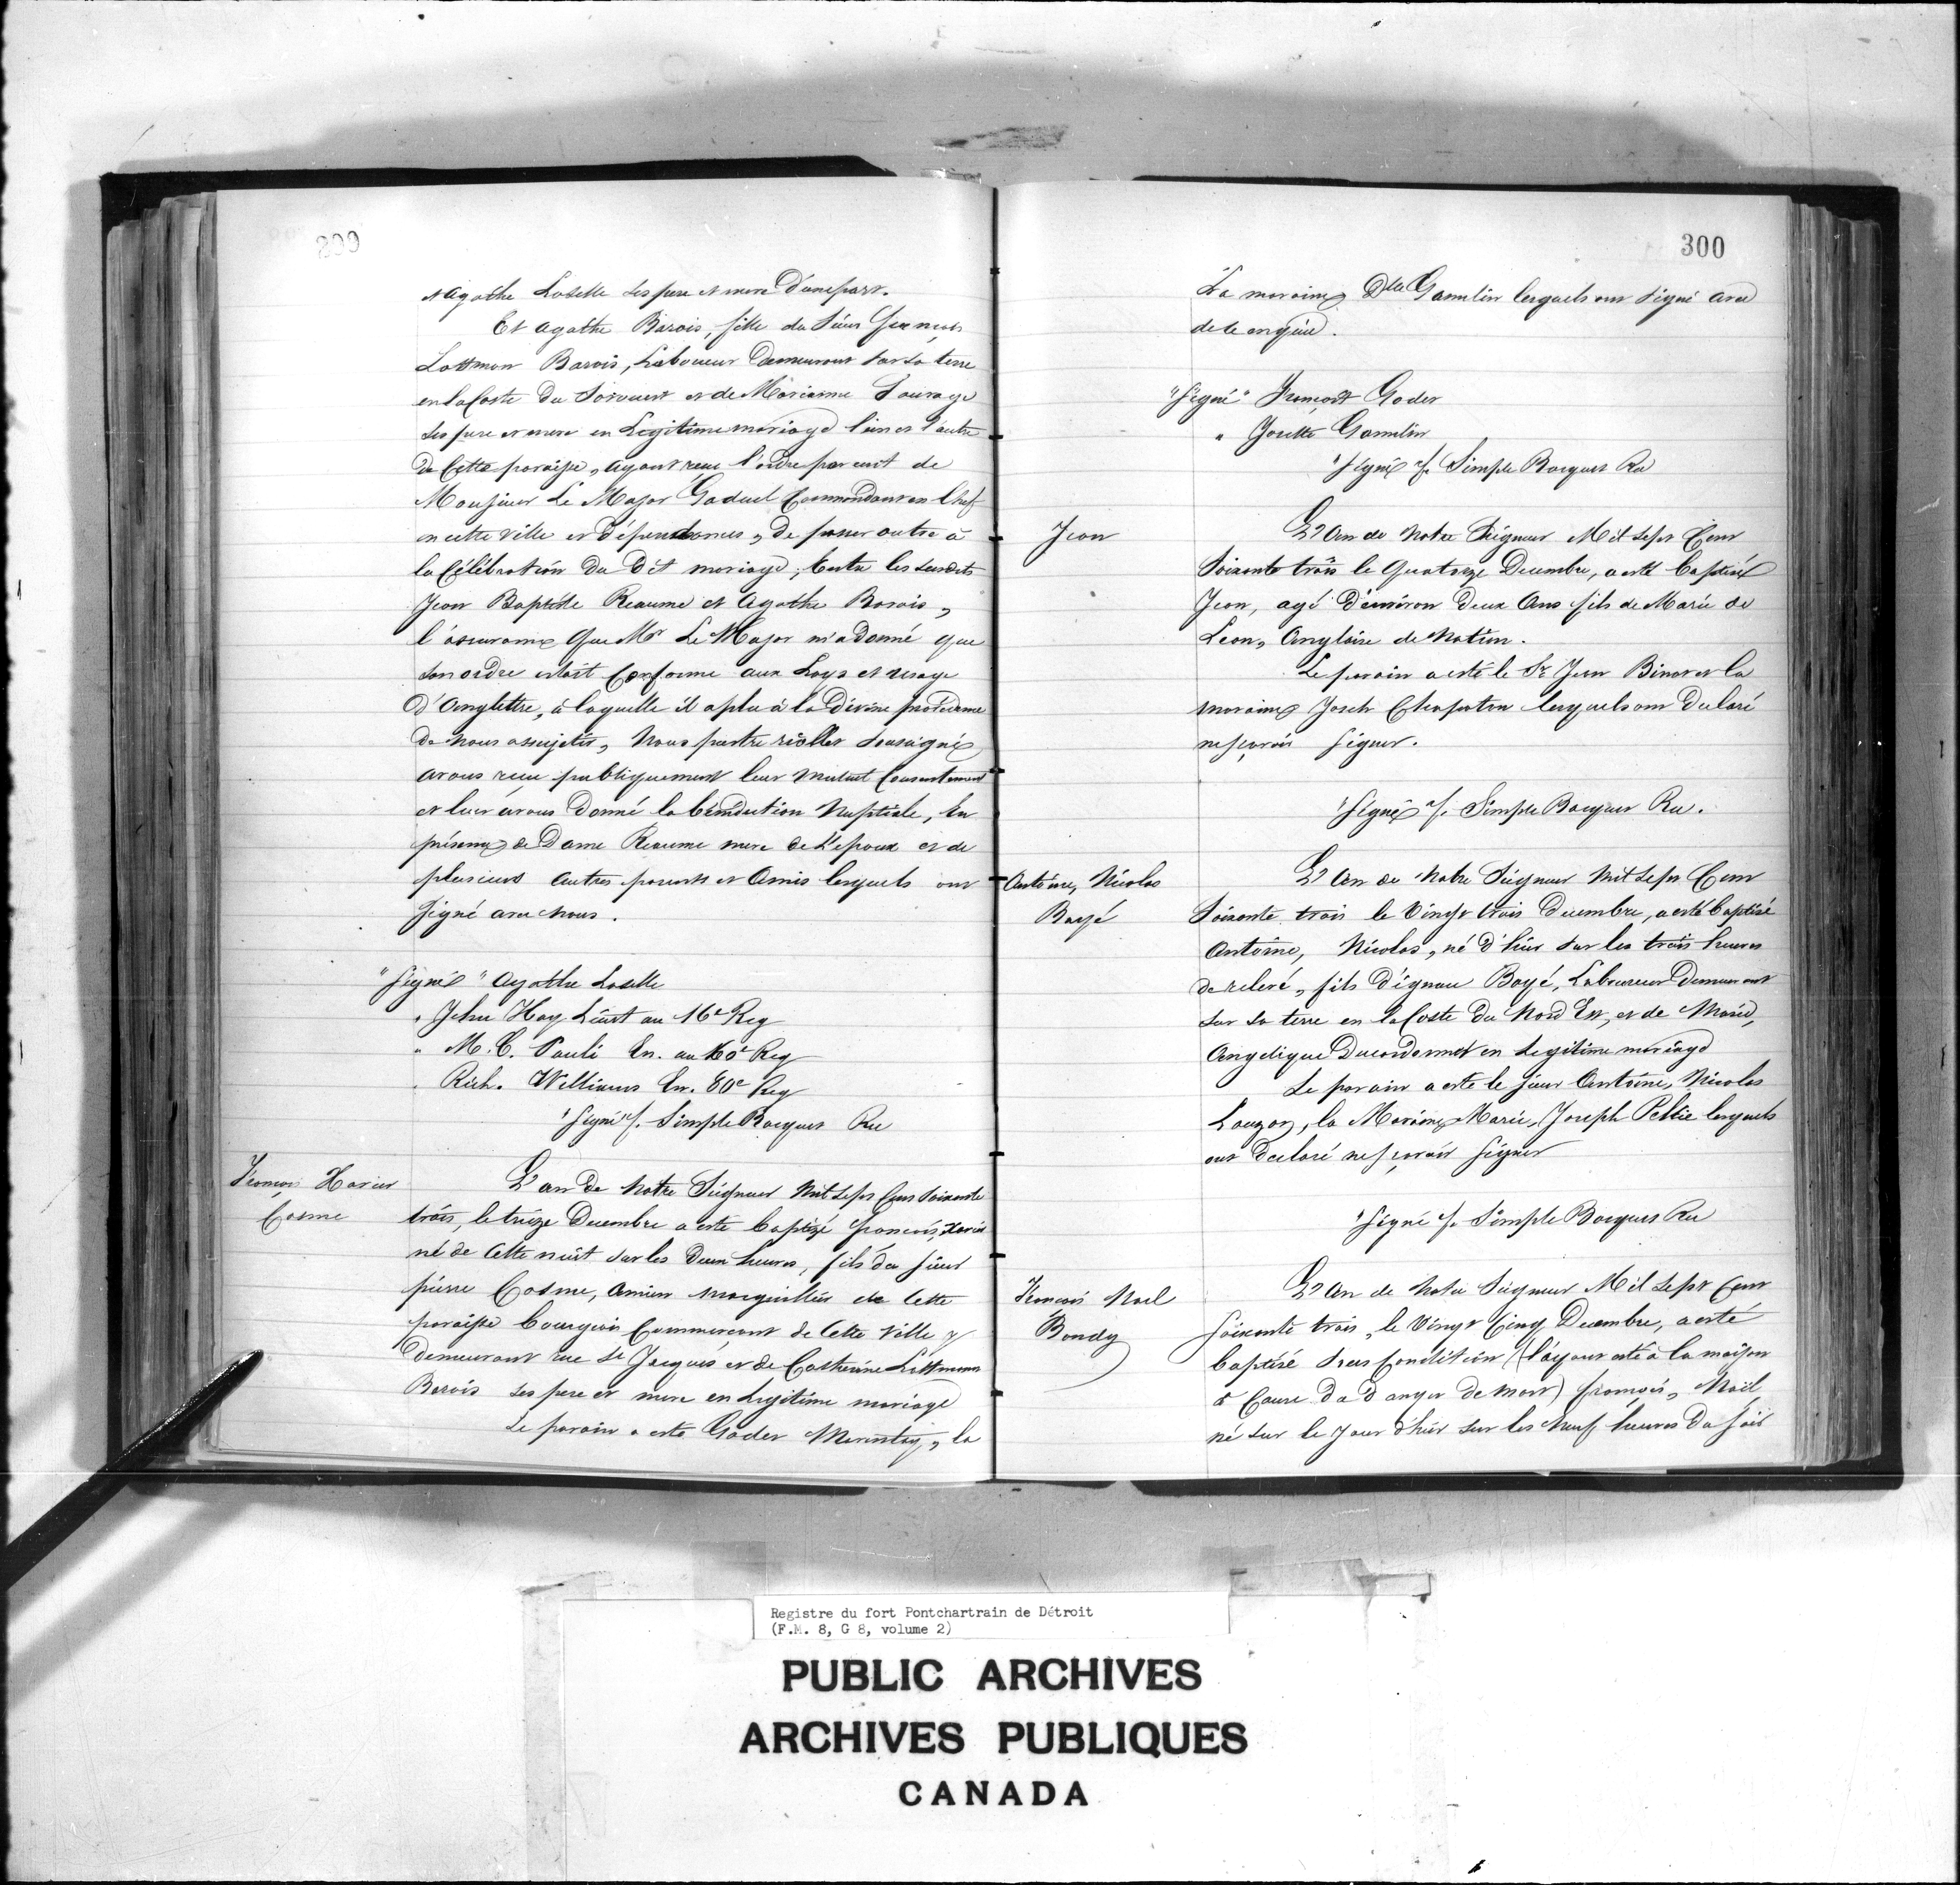 et Agathe Loselle ses pere et mere D'une part.
Et Agathe Barois, fille du Sieur francois
Lottman Barois, Laboureur Demeurant sur sa terre
en la Coste du Sorouest et de Marianne Sauvage
ses pere et mere en Legitime mariage l'un et l'autre
de Cette paroisse, ayant recu l'ordre par ecrit de
Monsieur Le Major Gaduel Commandant en Chef
en cette ville et Dépendances, de passer outre à
la Célébration Du Dit mariage; Entre les susdits
Jean Baptiste Reaume et Agathe Barois,
l'assurance Que Mr Le Major m'a Donné que
son ordre estoit Conforme aux Loys et usage
D'Anglettre, à laquelle il a plu à la Divine providence
De Nous assujetir, Nous prestre soussigné
avons recu publiquement leur mutuel Consentement
et leur avons Donné la bénédiction Nuptiale, En
présence de Dame Reaume mere de L'epoux et de
plusieurs autres parents et Amis lesquels ont
signé avec nous.
"Signé" Agathe Loselle
" Jehu Hay Lieut au 16e Reg
" M. C. Pauli En. au 60e Reg
" Rich. Williams En. 80e Reg
"Signé" f. Simple Bocquet Rec
800
François Xavier
Cosme
L'an De Notre Seigneur Mil Sept Cens Soixante
trois, le treize Decembre a esté baptizé francois, Xavier
né de Cette nuit sur les Deux heures, fils du sieur
pierre Cosme, Ancien marguillier de Cette
paroisse bourgeois Commercant de Cette Ville y
Demeurant rue St Jacques et de Catherine Lottman
Barois ses pere et mere en Legitime mariage
Le parain a esté Godet Marentay, la
300
La maraine Dlle Gamelin lesquels ont signé avec
de ce enquis.
"Signé" François Godet
" Josette Gamelin
"Signé" f. Simple Bocquet Rec
Jean
L'An de Notre Seigneur Mil Sept Cent
Soixante trois le Quatorze Decembre, a esté baptisé
Jean, agé d'environ Deux Ans fils de Marie de
Leon, Anglaise de Nation.
Le parain a esté le Sr Jean Binet et la
maraine Joseh Chapoton lesquels ont Declaré
ne scavoir signer.
"Signé" f. Simple Bocquet Rec.
Antoine, Nicolas
Boyé
L'An de Notre Seigneur Mil Sept Cent
Soixante trois le Vingt trois Decembre, a esté baptisé
Antoine, Nicolas, né d'hier sur les trois heures
de relevé, fils d'ignace Boyé, Laboureur Demeurant
sur sa terre en la Coste Du Nord Est, et de Marie,
Angelique Ducordonnet en Legitime mariage
Le parain a esté le sieur Antoine, Nicolas
Lauzon, la Maraine Marie, Joseph Peltie lesquels
ont Declaré ne scavoir signer
"Signé f. Simple Bocquet Rec
François Noel
Bondy
L'An de Notre Seigneur Mil Sept Cent
Soixante trois, le Vingt Cinq Decembre, a esté
baptisé sous Condition (l'ayant esté à la maison
à Cause De Danger De mort) françois, Noël,
né sur le Jour d'hier sur les Neuf heures Du soir
Registre du fort Pontchartrain de Détroit
(F.M. 8, G 8, volume 2)
PUBLIC ARCHIVES
ARCHIVES PUBLIQUES
CANADA